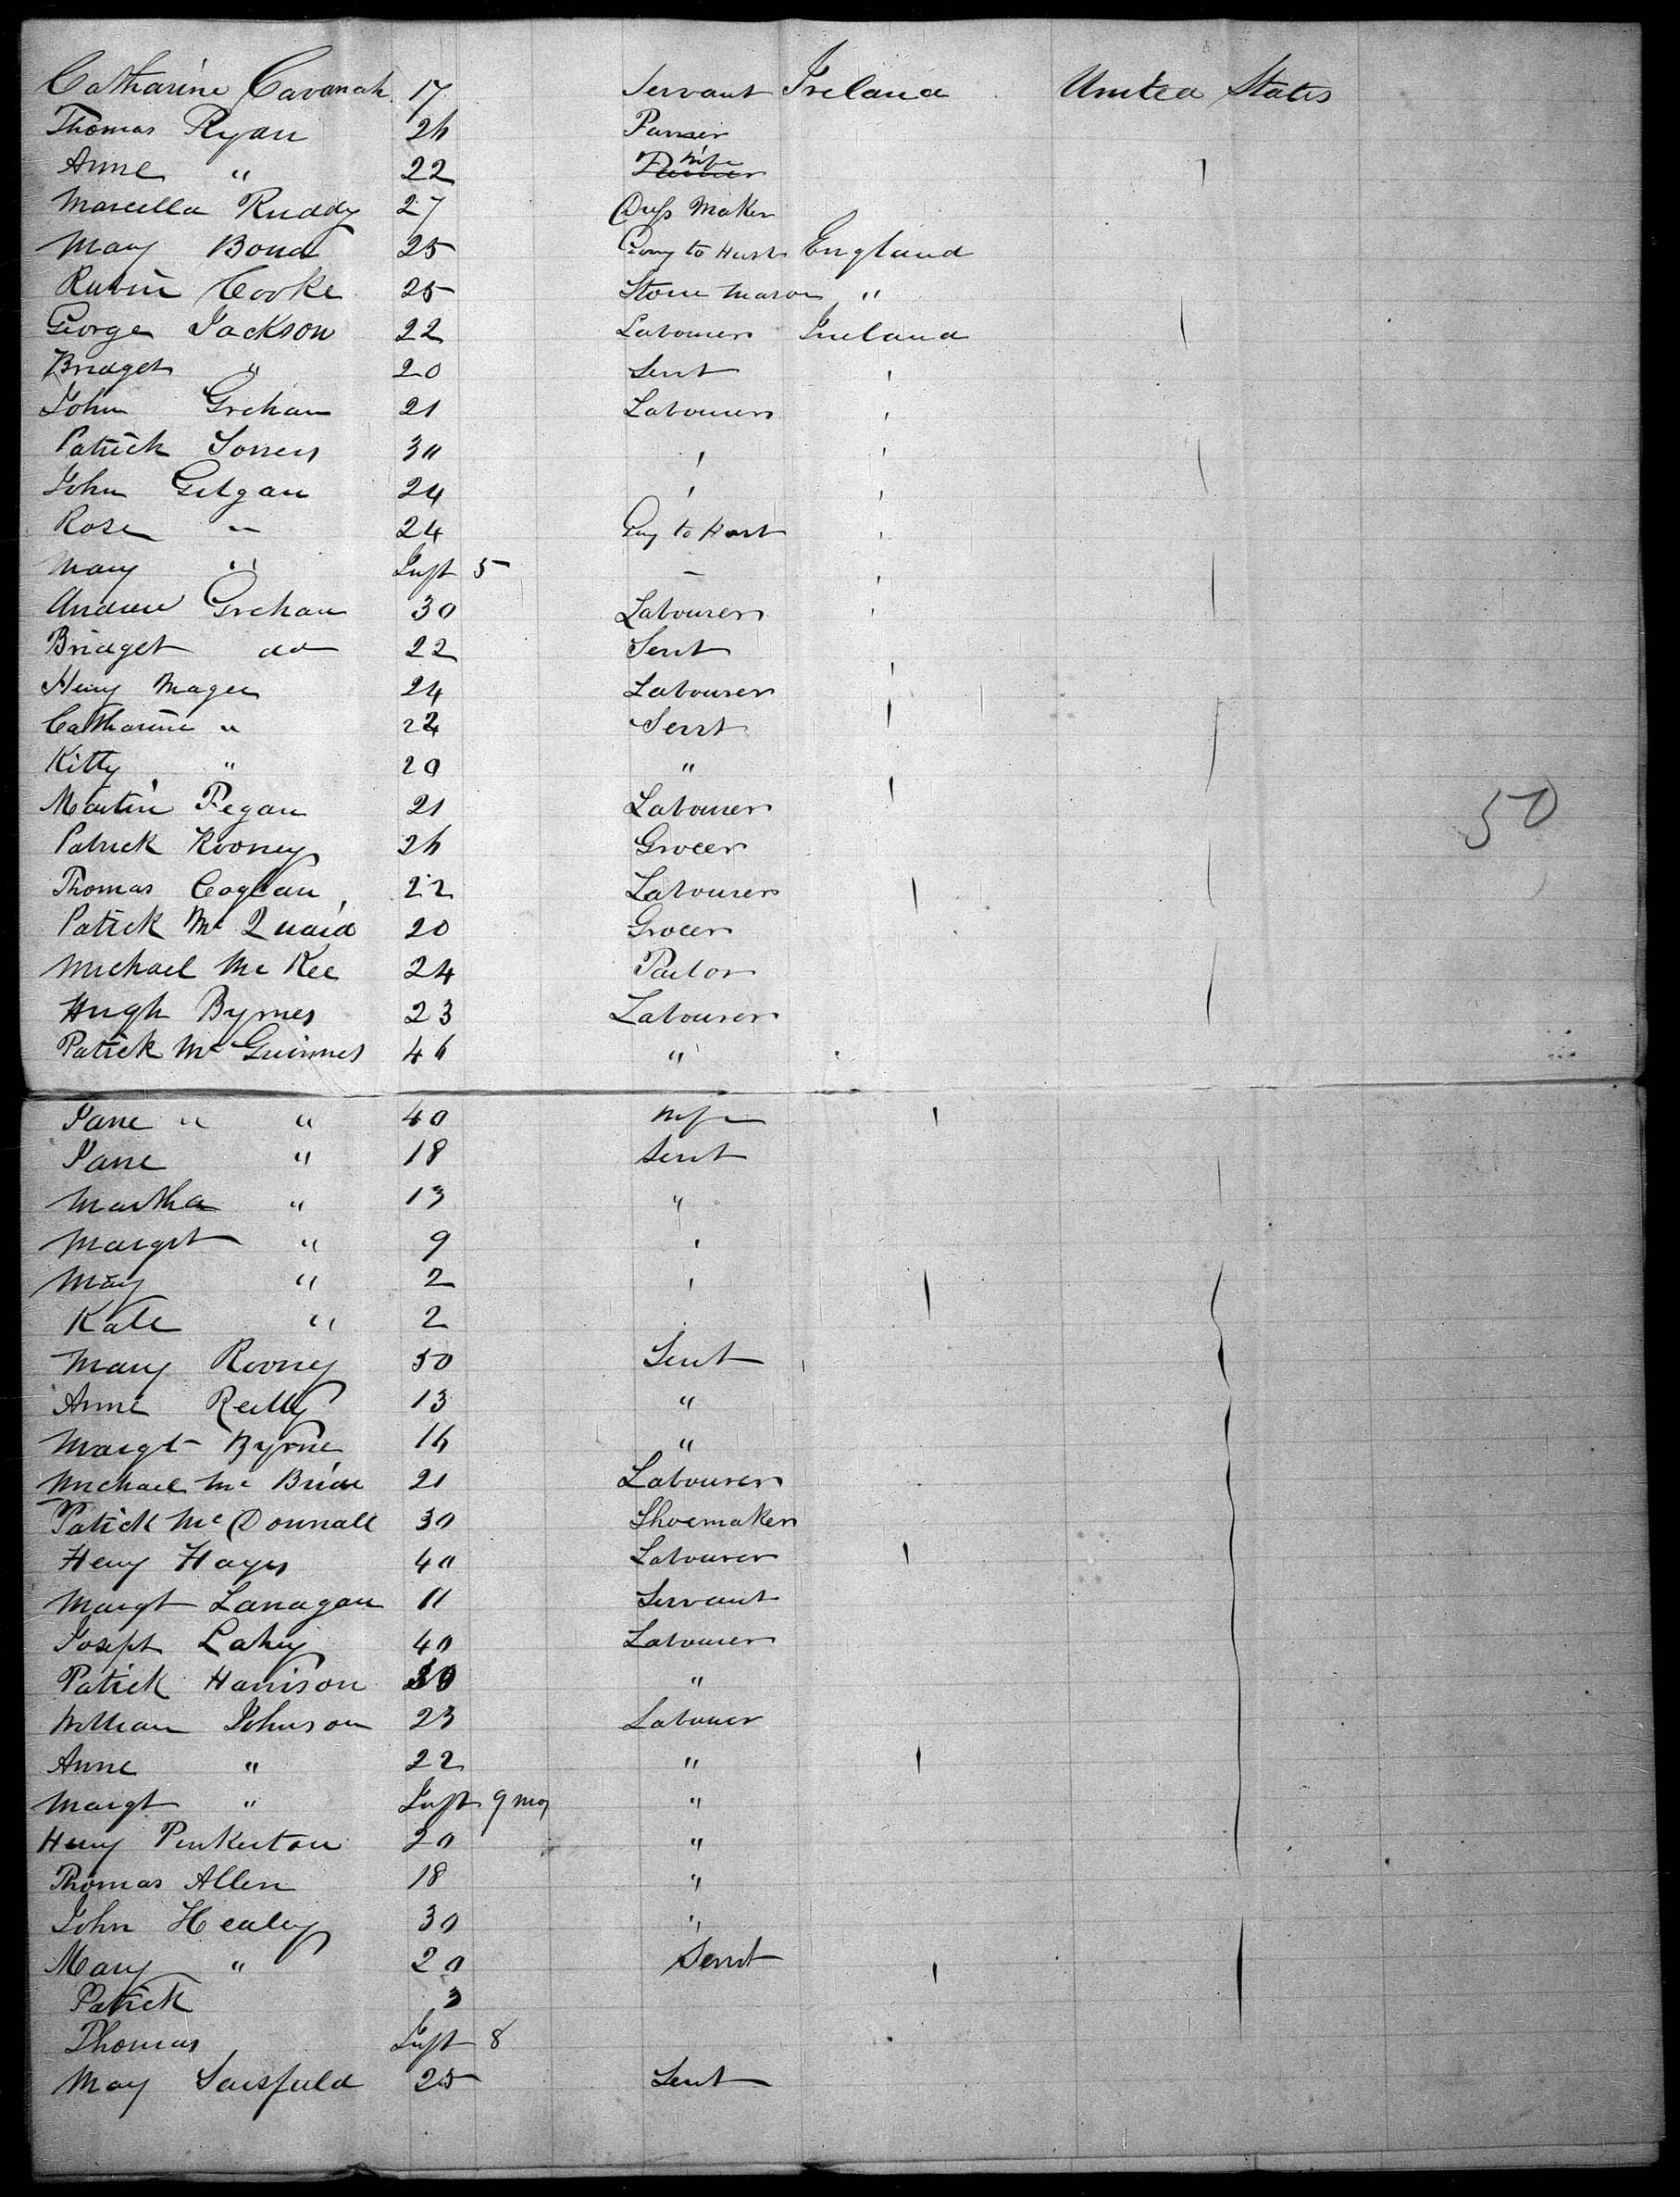 Catharine Cavanah 17 Servant Ireland United States
Thomas Ryan 26
Anne " 22 Wife
Marcella Ruddy 27 Dress Maker
Mary Bond 25 Going to Husb England
Cooke 25 Stone Mason "
George Jackson 22 Labourer Ireland
Bridget " 20 Sert
John Grehan 21 Labourer
Patrick 30
John Gilgan 24
Rose " 24 Gog to Husb
Mary " Inft 5
Andrew Grehan 30 Labourer
Bridget do 22 Sert
Henry Magee 24 Labourer
Catharine " 22 Servt
Kitty " 20 "
Martin Fegan 21 Labourer
50
Patrick Rooney 26 Grocer
Thomas Coglan 22 Labourer
Patrick Mc Quaid 20 Grocer
Michael Mc Kee 24 Tailor
Hugh Byrnes 23 Labourer
Patrick Mc Guinnes 46 "
Jane " " 40 Wife
Jane " 18 Sert
Martha " 13 "
Margrt " 9
May " 2
Kate " 2
Mary Rooney 50 Sert
Anne Reilly 13 "
Margt Byrne 16 "
Michael Mc Bride 21 Labourer
Patrick Mc Donnall 30 Shoemaker
Henry Hayes 40 Labourer
Margt Lanagan 11 Servant
Joseph Lahey 40 Labourer
Patrick Harrison 30 "
William Johnson 23 Labouer
Anne " 22 "
Margt " Inft 9 mos "
Henry Pinkerton 20 "
Thomas Allen 18 "
John Healey 30 "
Mary " 20 Servt
Patrick 3
Thomas Inft 8
May Sarsfield 25 Sert